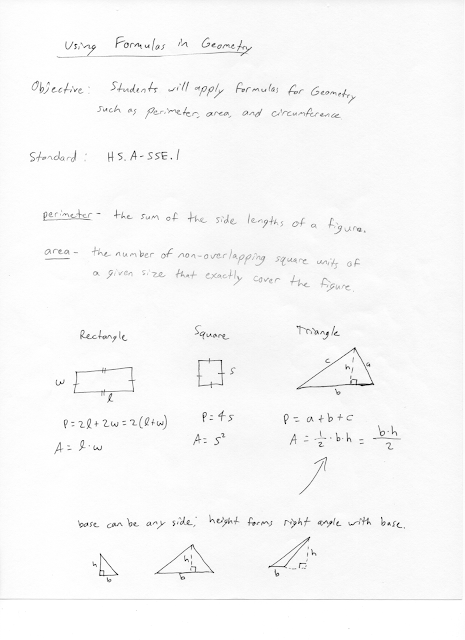 Using Formulas in Geometry
Objective: Students will apply formulas for Geometry
such as perimeter, area, and circumference
Standard: HS.A-SSE.1
perimeter - the sum of the side lengths of a figure.
area - the number of non-overlapping square units of
a given size that exactly cover the figure.
Rectangle
w
l
P = 2l + 2w = 2(l+w)
A = l·w
Square
s
P = 4s
A = s²
Triangle
c
h
a
b
P = a + b + c
A = 1/2 · b·h = b·h/2
base can be any side; height forms right angle with base.
h
b
h
b
h
b